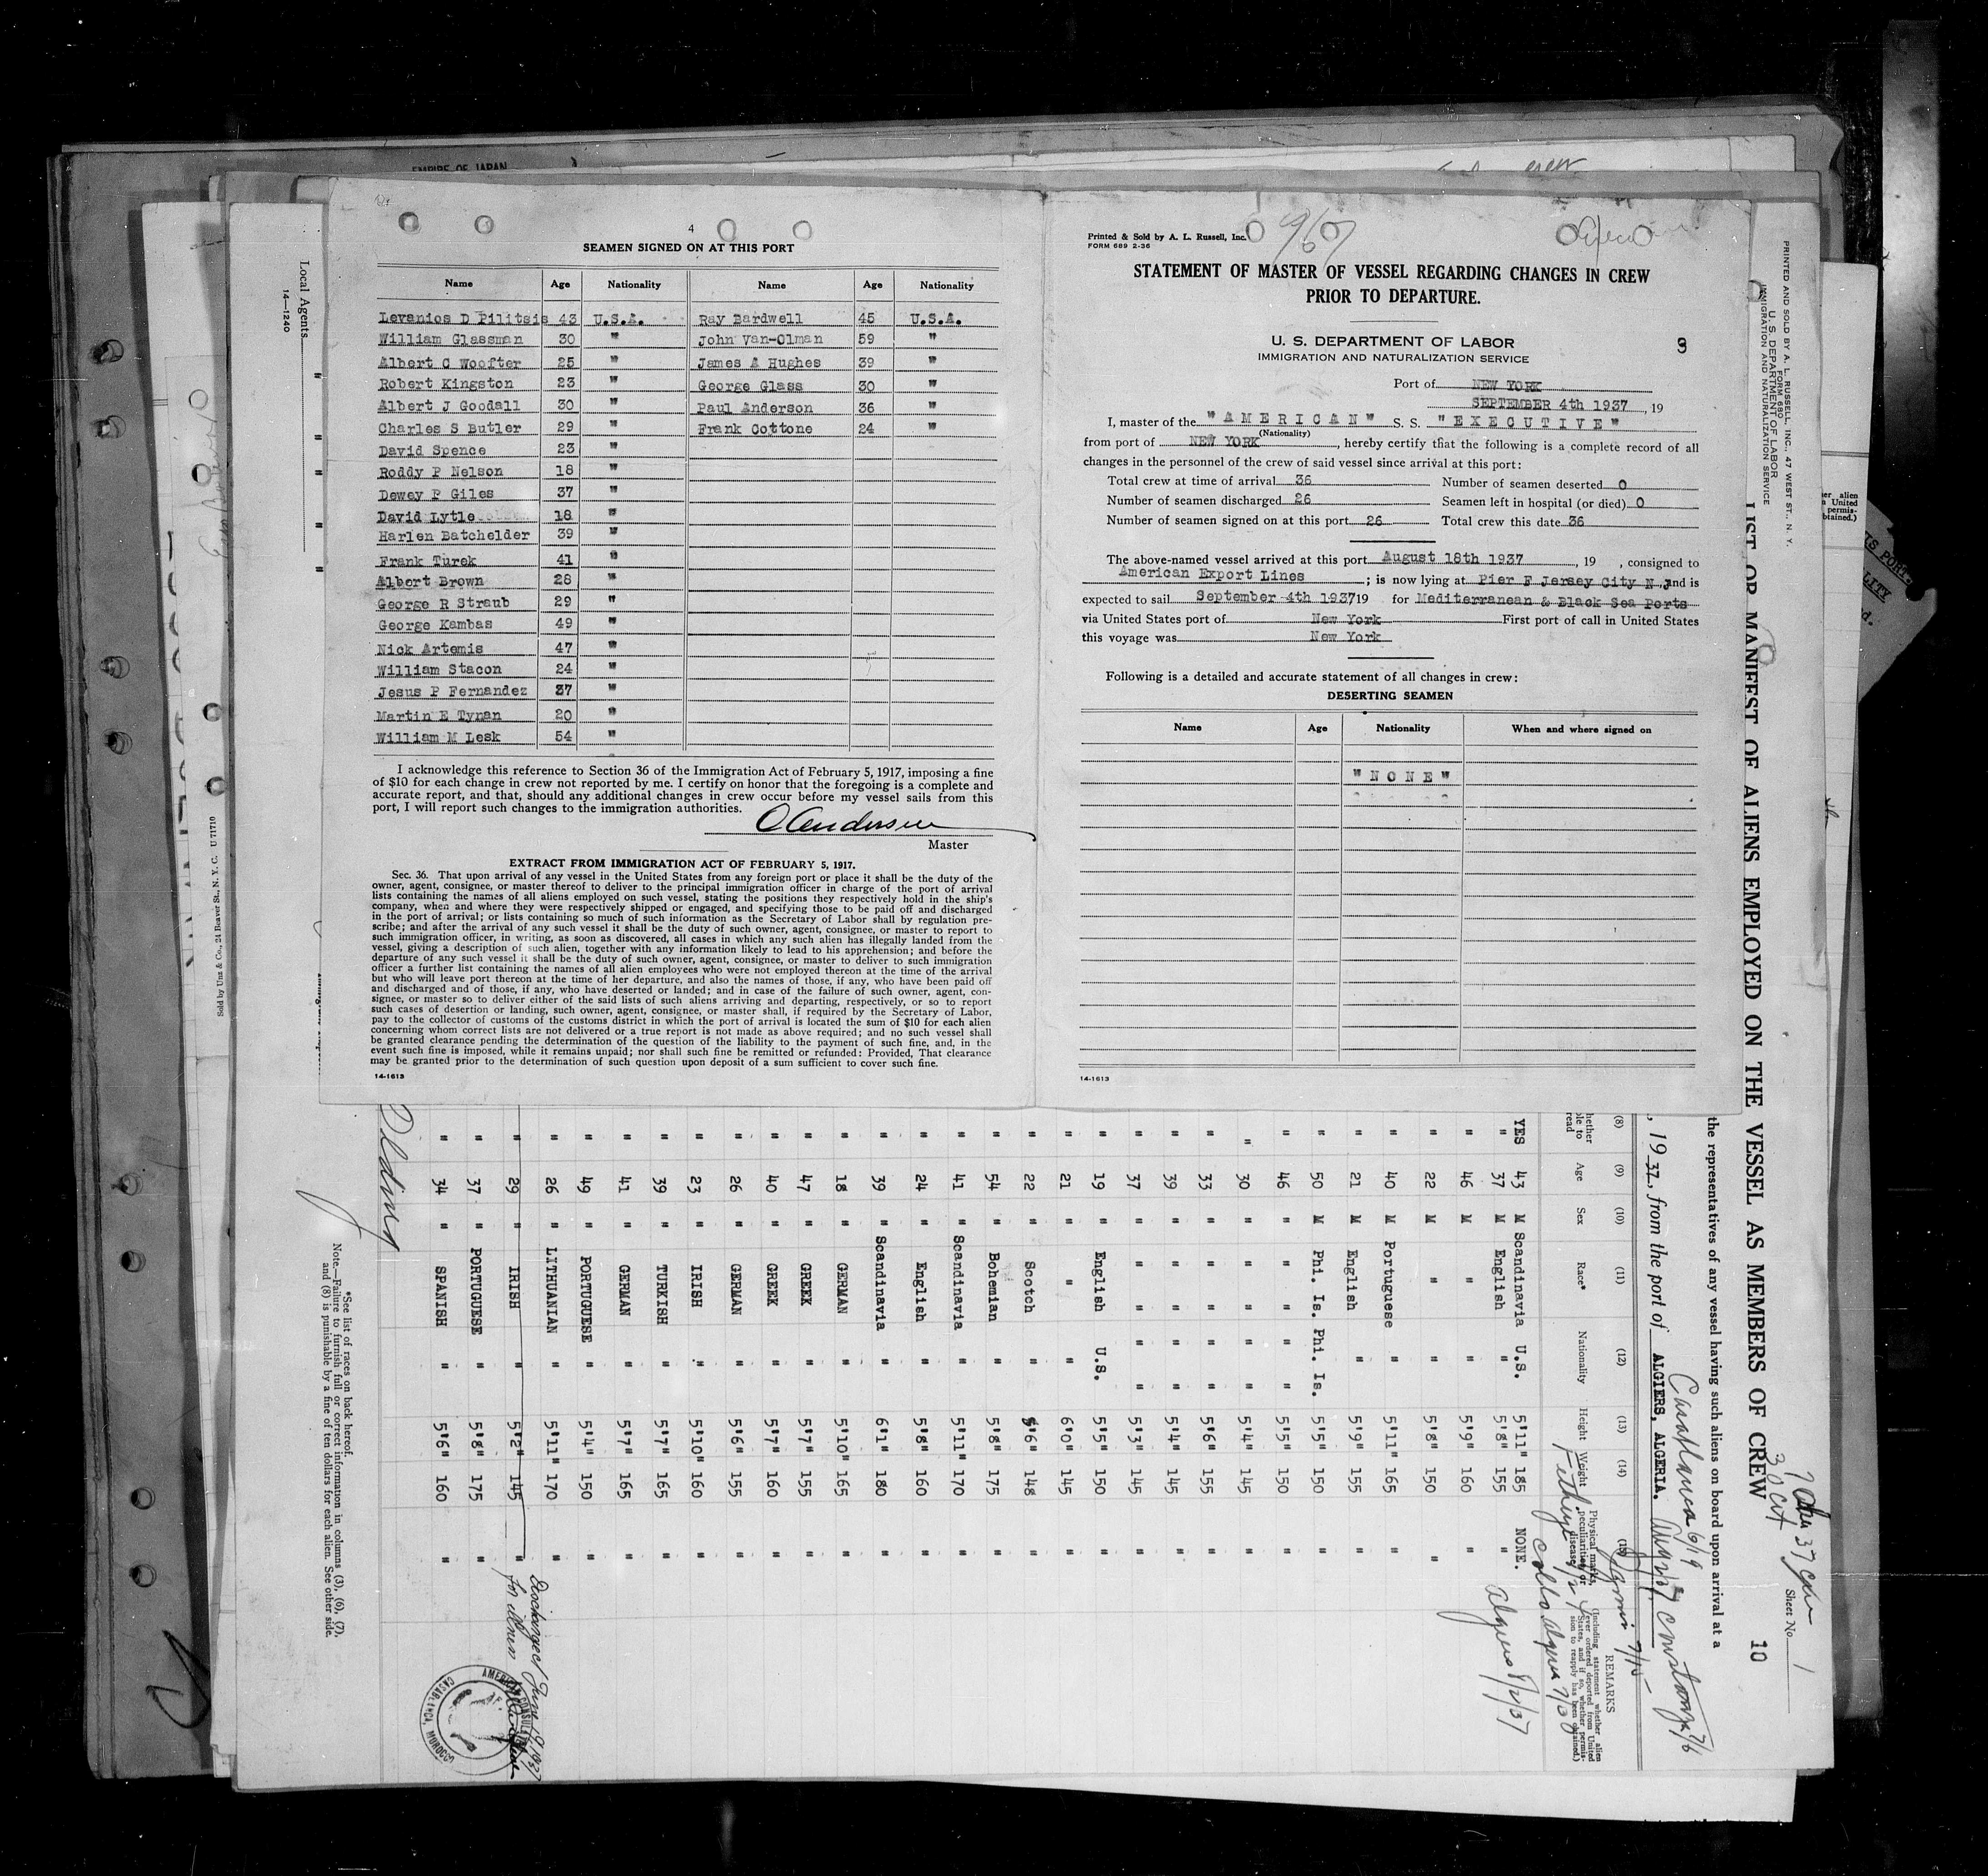 EMPIRE OF JAPAN
4
SEAMEN SIGNED ON AT THIS PORT
Name Age Nationality Name Age Nationality
Levanios D Pilitsis 43 U.S.A. Ray Bardwell 45 U.S.A.
William Glassman 30 " John Van-Olman 59 "
Albert C Woofter 25 " James A Hughes 39 "
Robert Kingston 23 " George Glass 30 "
Albert J Goodall 30 " Paul Anderson 36 "
Charles S Butler 29 " Frank Cottone 24 "
David Spence 23 "
Roddy P Nelson 18 "
Dewey P Giles 37 "
David Lytle 18 "
Harlen Batchelder 39 "
Frank Turek 41 "
Albert Brown 28 "
George R Straub 29 "
George Kambas 49 "
Nick Artemis 47 "
William Stacon 24 "
Jesus P Fernandez 37 "
Martin E Tynan 20 "
William M Lesk 54 "
I acknowledge this reference to Section 36 of the Immigration Act of February 5, 1917, imposing a fine
of $10 for each change in crew not reported by me. I certify on honor that the foregoing is a complete and
accurate report, and that, should any additional changes in crew occur before my vessel sails from this
port, I will report such changes to the immigration authorities.
Master
EXTRACT FROM IMMIGRATION ACT OF FEBRUARY 5, 1917.
Sec. 36. That upon arrival of any vessel in the United States from any foreign port or place it shall be the duty of the
owner, agent, consignee, or master thereof to deliver to the principal immigration officer in charge of the port of arrival
lists containing the names of all aliens employed on such vessel, stating the positions they respectively hold in the ship's
company, when and where they were respectively shipped or engaged, and specifying those to be paid off and discharged
in the port of arrival; or lists containing so much of such information as the Secretary of Labor shall by regulation pre-
scribe; and after the arrival of any such vessel it shall be the duty of such owner, agent, consignee, or master to report to
such immigration officer, in writing, as soon as discovered, all cases in which any such alien has illegally landed from the
vessel, giving a description of such alien, together with any information likely to lead to his apprehension; and before the
departure of any such vessel it shall be the duty of such owner, agent, consignee, or master to deliver to such immigration
officer a further list containing the names of all alien employees who were not employed thereon at the time of the arrival
but who will leave port thereon at the time of her departure, and also the names of those, if any, who have been paid off
and discharged and of those, if any, who have deserted or landed; and in case of the failure of such owner, agent, con-
signee, or master so to deliver either of the said lists of such aliens arriving and departing, respectively, or so to report
such cases of desertion or landing, such owner, agent, consignee, or master shall, if required by the Secretary of Labor,
pay to the collector of customs of the customs district in which the port of arrival is located the sum of $10 for each alien
concerning whom correct lists are not delivered or a true report is not made as above required; and no such vessel shall
be granted clearance pending the determination of the question of the liability to the payment of such fine, and, in the
event such fine is imposed, while it remains unpaid; nor shall such fine be remitted or refunded: Provided, That clearance
may be granted prior to the determination of such question upon deposit of a sum sufficient to cover such fine.
14-1613
Printed & Sold by A. L. Russell, Inc.
FORM 689 2-36
967
STATEMENT OF MASTER OF VESSEL REGARDING CHANGES IN CREW
PRIOR TO DEPARTURE.
U. S. DEPARTMENT OF LABOR
IMMIGRATION AND NATURALIZATION SERVICE
Port of NEW YORK
SEPTEMBER 4th 1937, 19
I, master of the "AMERICAN" S. S. "EXECUTIVE"
(Nationality)
from port of NEW YORK, hereby certify that the following is a complete record of all
changes in the personnel of the crew of said vessel since arrival at this port:
Total crew at time of arrival 36 Number of seamen deserted 0
Number of seamen discharged 26 Seamen left in hospital (or died) 0
Number of seamen signed on at this port 26 Total crew this date 36
The above-named vessel arrived at this port August 18th 1937, 19 , consigned to
American Export Lines; is now lying at Pier F Jersey City N.J and is
expected to sail September 4th 1937 19 for Mediterranean & Black Sea Ports
via United States port of New York First port of call in United States
this voyage was New York
Following is a detailed and accurate statement of all changes in crew:
DESERTING SEAMEN
Name Age Nationality When and where signed on
"NONE"
14-1613
Local Agents
14-1240
Sold by Unz & Co., 24 Beaver St., N. Y. C. U 71710
PRINTED AND SOLD BY A. L. RUSSELL, INC., 47 WEST ST., N. Y.
FORM 680
U. S. DEPARTMENT OF LABOR
IMMIGRATION AND NATURALIZATION SERVICE
LIST OR MANIFEST OF ALIENS EMPLOYED ON THE VESSEL AS MEMBERS OF CREW
Sheet No. 1
10
the representatives of any vessel having such aliens on board upon arrival at a
, 1937, from the port of ALGIERS, ALGERIA.
Casablanca 6/19
(8) (9) (10) (11) (12) (13) (14) (15)
Age Sex Race* Nationality Height Weight Physical marks, peculiarities, or disease REMARKS
YES 43 M Scandinavia U.S. 5'11" 185 NONE.
" 37 M English " 5'8" 155 "
" 46 M " " 5'9" 160 "
" 22 M " " 5'8" 150 "
" 40 M Portuguese " 5'11" 165 "
" 21 M English " 5'9" 155 "
" 50 M Phi. Is. Phi. Is. 5'5" 150 "
" 46 " " " 5'5" 150 "
" 30 " " " 5'4" 145 "
" 33 " " " 5'6" 155 "
" 39 " " " 5'4" 145 "
" 37 " " " 5'3" 145 "
" 19 " English U.S. 5'5" 150 "
" 21 " " " 6'0" 145 "
" 22 " Scotch " 5'6" 148 "
" 54 " Bohemian " 5'8" 175 "
" 41 " Scandinavia " 5'11" 170 "
" 24 " English " 5'8" 160 "
" 39 " Scandinavia " 6'1" 180 "
" 18 " GERMAN " 5'10" 165 "
" 47 " GREEK " 5'7" 155 "
" 40 " GREEK " 5'7" 160 "
" 26 " GERMAN " 5'6" 155 "
" 23 " IRISH " 5'10" 160 "
" 39 " TURKISH " 5'7" 165 "
" 41 " GERMAN " 5'7" 165 "
" 49 " PORTUGUESE " 5'4" 150 "
" 26 " LITHUANIAN " 5'11" 170 "
" 29 " IRISH " 5'2" 145 "
" 37 " PORTUGUESE " 5'8" 175 "
" 34 " SPANISH " 5'6" 160 "
Algiers 8/2/37
Discharged June 19, 1937
for illness
CASABLANCA, MOROCCO
*See list of races on back hereof.
Note.—Failure to furnish full or correct information in columns (3), (6), (7),
and (8) is punishable by a fine of ten dollars for each alien. See other side.